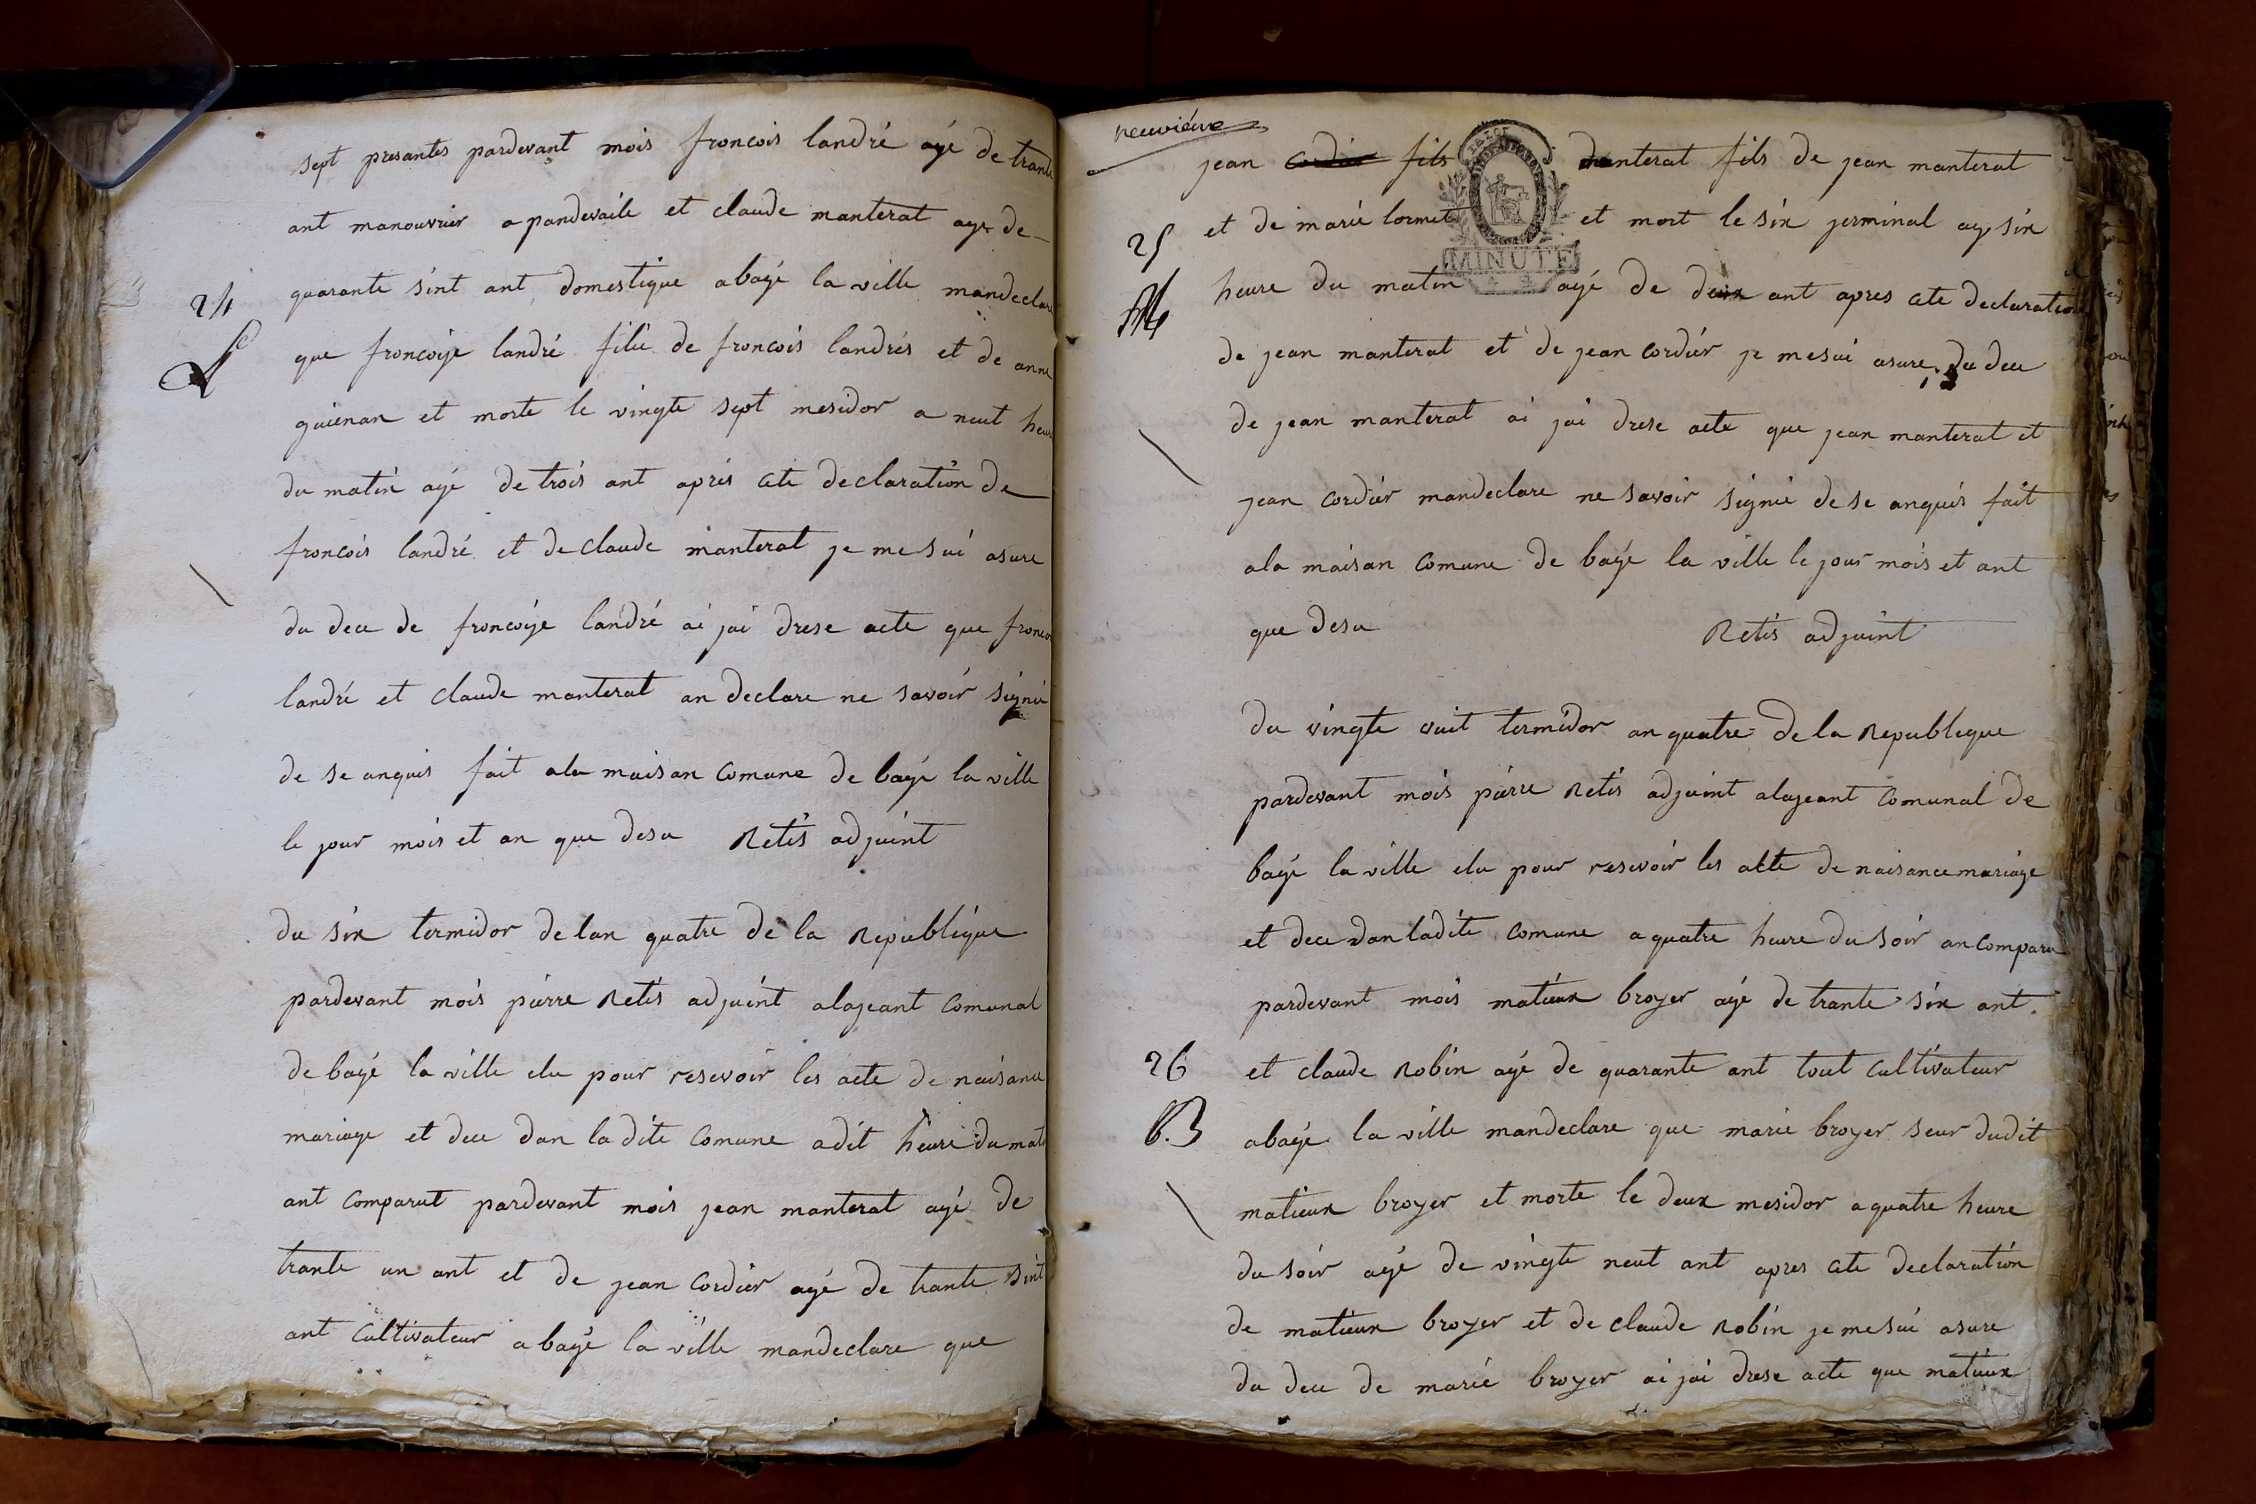 sept presantes pardevant mois froncois landré ayé de trante
ant manouvrier a pandevaile et claude manterat aye de
quarante sint ant domestique a bayé la ville mandeclare
24
que froncoije landré filie de froncois landrés et de anne
guienan et morte le vingte sept mesidor a neut heure
du matin ayé de trois ant aprés cete declaration de
froncois landré et de claude manterat je me sui asure
du dece de froncoije landré ai jai drese acte que froncoi
landré et claude manterat an declare ne savoir signié
de se anquis fait ala maison comune de bayé la ville
le jour mois et an que desu Retis adjuint
du six termidor de lan quatre de la Republique
pardevant mois piérre Retis adjuint alajeant comunal
de bayé la ville elu pour resevoir les acte de naisance
mariage et dece dan la dite comune a dit heure du mat
ant comparut pardevant mois jean manterat ayé de
trante un ant et de jean cordiér ayé de trante sint
ant cultivateur a bayé la ville mandeclare que
neuviéme
jean cordier fils manterat fils de jean manterat
MINUTE
et de marié lormet et mort le six jerminal ay six
25
heure du matin ayé de deux ant apres cete declaration
M
de jean manterat et de jean cordiér je me sui asure du dece
de jean manterat ai jai drese acte que jean manterat et
jean cordiér mandeclare ne savoir signié de se anquis fait
ala maison comune de bayé la ville le jour mois et ant
que desu Retis adjuint
du vingte vuit termidor an quatre de la Republeque
pardevant mois piérre Retis adjuint alajeant comunal de
bayé la ville elu pour resevoir les akte de naisance mariage
et dece dan ladite comune a quatre heure du soir an comparu
pardevant mois matieux broyer ayé de trante six ant
26
et claude Robin ayé de quarante ant tout cultivateur
B.
abayé la ville mandeclare que marie broyer seur dudit
matieux broyer et morte le deux mesidor a quatre heure
du soir ayé de vingte neut ant apres cete declaration
de matieux broyer et de claude Robin je me sui asure
du dece de marié broyer ai jai drese acte que matieux